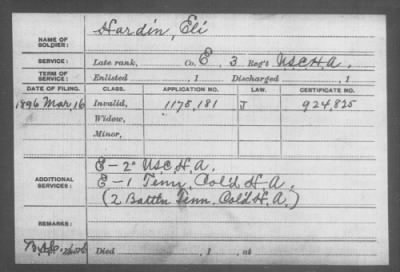 NAME OF SOLDIER: Hardin, Eli
SERVICE: Late rank, Co. E, 3 Reg't U.S.C.H.A.
TERM OF SERVICE: Enlisted , 1 Discharged , 1
DATE OF FILING. CLASS. APPLICATION NO. LAW. CERTIFICATE NO.
1896 Mar, 16 Invalid, 1175,181 J 924,825
Widow,
Minor,
ADDITIONAL SERVICES: E-2" U.S.C.H.A.
E-1 Tenn. Col'd H.A.
(2 Battln Tenn. Col'd H.A.)
REMARKS:
Died , 1 , at